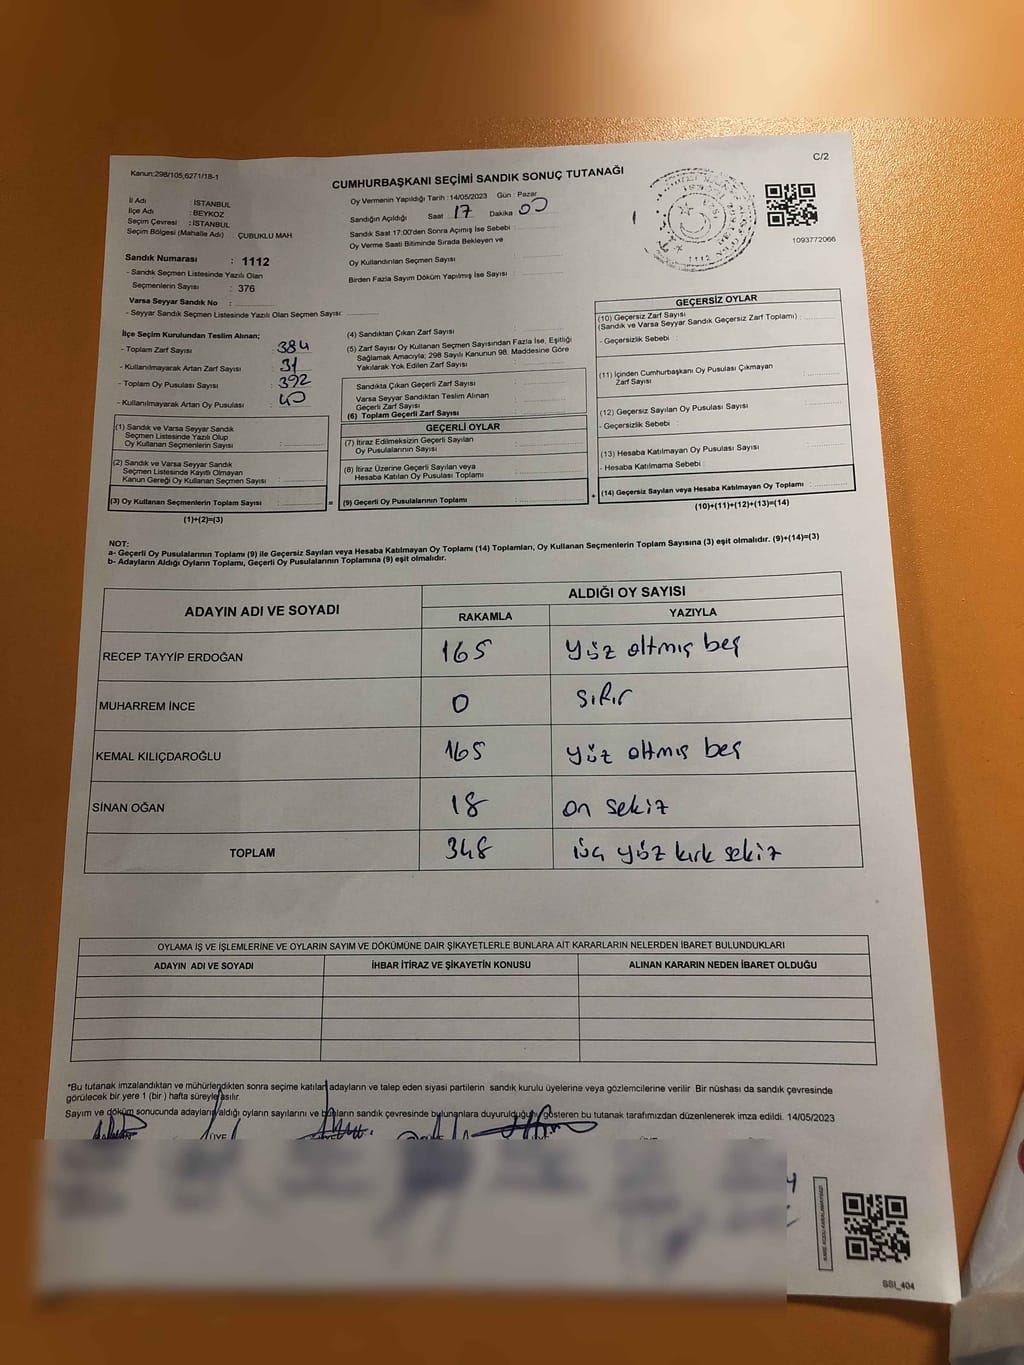 C/2
Kanun:298/105,6271/18-1
CUMHURBAŞKANI SEÇİMİ SANDIK SONUÇ TUTANAĞI
İl Adı : İSTANBUL
İlçe Adı : BEYKOZ
Seçim Çevresi : İSTANBUL
Seçim Bölgesi (Mahalle Adı) : ÇUBUKLU MAH.
Sandık Numarası : 1112
- Sandık Seçmen Listesinde Yazılı Olan
Seçmenlerin Sayısı : 376
Varsa Seyyar Sandık No :
- Seyyar Sandık Seçmen Listesinde Yazılı Olan Seçmen Sayısı:
Oy Vermenin Yapıldığı Tarih : 14/05/2023 Gün : Pazar
Sandığın Açıldığı Saat 17 Dakika 00
Sandık Saat 17:00'den Sonra Açımış İse Sebebi :
Oy Verme Saati Bitiminde Sırada Bekleyen ve
Oy Kullandırılan Seçmen Sayısı :
Birden Fazla Sayım Döküm Yapılmış İse Sayısı :
1093772066
İlçe Seçim Kurulundan Teslim Alınan;
- Toplam Zarf Sayısı : 384
- Kullanılmayarak Artan Zarf Sayısı : 31
- Toplam Oy Pusulası Sayısı : 392
- Kullanılmayarak Artan Oy Pusulası : 40
(1) Sandık ve Varsa Seyyar Sandık
Seçmen Listesinde Yazılı Olup
Oy Kullanan Seçmenlerin Sayısı :
(2) Sandık ve Varsa Seyyar Sandık
Seçmen Listesinde Kayıtlı Olmayan
Kanun Gereği Oy Kullanan Seçmen Sayısı :
(3) Oy Kullanan Seçmenlerin Toplam Sayısı : =
(1)+(2)=(3)
(4) Sandıktan Çıkan Zarf Sayısı :
(5) Zarf Sayısı Oy Kullanan Seçmen Sayısından Fazla İse, Eşitliği
Sağlamak Amacıyla; 298 Sayılı Kanunun 98. Maddesine Göre
Yakılarak Yok Edilen Zarf Sayısı :
Sandıkta Çıkan Geçerli Zarf Sayısı :
Varsa Seyyar Sandıktan Teslim Alınan
Geçerli Zarf Sayısı :
(6) Toplam Geçerli Zarf Sayısı :
GEÇERLİ OYLAR
(7) İtiraz Edilmeksizin Geçerli Sayılan
Oy Pusulalarının Sayısı :
(8) İtiraz Üzerine Geçerli Sayılan veya
Hesaba Katılan Oy Pusulası Toplamı :
(9) Geçerli Oy Pusulalarının Toplamı : +
GEÇERSİZ OYLAR
(10) Geçersiz Zarf Sayısı
(Sandık ve Varsa Seyyar Sandık Geçersiz Zarf Toplamı) :
- Geçersizlik Sebebi :
(11) İçinden Cumhurbaşkanı Oy Pusulası Çıkmayan
Zarf Sayısı :
(12) Geçersiz Sayılan Oy Pusulası Sayısı :
- Geçersizlik Sebebi :
(13) Hesaba Katılmayan Oy Pusulası Sayısı :
- Hesaba Katılmama Sebebi :
(14) Geçersiz Sayılan veya Hesaba Katılmayan Oy Toplamı :
(10)+(11)+(12)+(13)=(14)
NOT:
a- Geçerli Oy Pusulalarının Toplamı (9) ile Geçersiz Sayılan veya Hesaba Katılmayan Oy Toplamı (14) Toplamları, Oy Kullanan Seçmenlerin Toplam Sayısına (3) eşit olmalıdır. (9)+(14)=(3)
b- Adayların Aldığı Oyların Toplamı, Geçerli Oy Pusulalarının Toplamına (9) eşit olmalıdır.
ADAYIN ADI VE SOYADI ALDIĞI OY SAYISI
RAKAMLA YAZIYLA
RECEP TAYYİP ERDOĞAN 165 yüz altmış beş
MUHARREM İNCE 0 sıfır
KEMAL KILIÇDAROĞLU 165 yüz altmış beş
SİNAN OĞAN 18 on sekiz
TOPLAM 348 üç yüz kırk sekiz
OYLAMA İŞ VE İŞLEMLERİNE VE OYLARIN SAYIM VE DÖKÜMÜNE DAİR ŞİKAYETLERLE BUNLARA AİT KARARLARIN NELERDEN İBARET BULUNDUKLARI
ADAYIN ADI VE SOYADI İHBAR İTİRAZ VE ŞİKAYETİN KONUSU ALINAN KARARIN NEDEN İBARET OLDUĞU
*Bu tutanak imzalandıktan ve mühürlendikten sonra seçime katılan adayların ve talep eden siyasi partilerin sandık kurulu üyelerine veya gözlemcilerine verilir Bir nüshası da sandık çevresinde
görülecek bir yere 1 (bir ) hafta süreyle asılır.
Sayım ve döküm sonucunda adayların aldığı oyların sayılarını ve bunların sandık çevresinde bulunanlara duyurulduğunu gösteren bu tutanak tarafımızdan düzenlenerek imza edildi. 14/05/2023
SSI_404